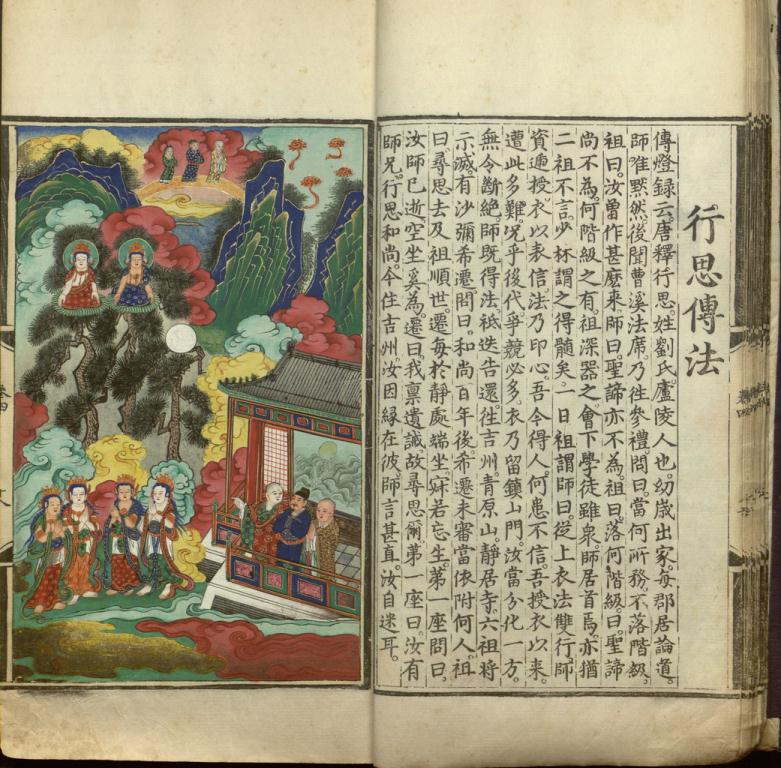 行思傳法
傳燈錄云。唐釋行思。姓劉氏。廬陵人也。幼歲出家。每郡居論道。
師唯默然。後聞曹溪法席。乃往參禮。問曰。當何所務。不落階級。
祖曰。汝曾作甚麽來。師曰。聖諦亦不為。祖曰。落何階級。曰。聖諦
尚不為。何階級之有。祖深器之。會下學徒雖衆。師居首焉。亦猶
二祖不言。少林謂之得髓矣。一日祖謂師曰。從上衣法雙行。師
資遞授。衣以表信。法乃印心。吾今得人。何患不信。吾授衣以来。
遭此多難。況乎後代。爭競必多。衣乃留鎮山門。汝當分化一方。
無令斷絕。師既得法。祗迭告還。往吉州青原山。靜居寺。六祖將
示滅。有沙彌希遷問曰。和尚百年後。希遷未審當依附何人。祖
曰。尋思去。及祖順世。遷每於靜處端坐。寂若忘生。第一座問曰。
汝師已逝。空坐奚為。遷曰。我稟遺誡。故尋思爾。第一座曰。汝有
師兄。行思和尚。今住吉州。汝因緣在彼。師言甚直。汝自迷耳。